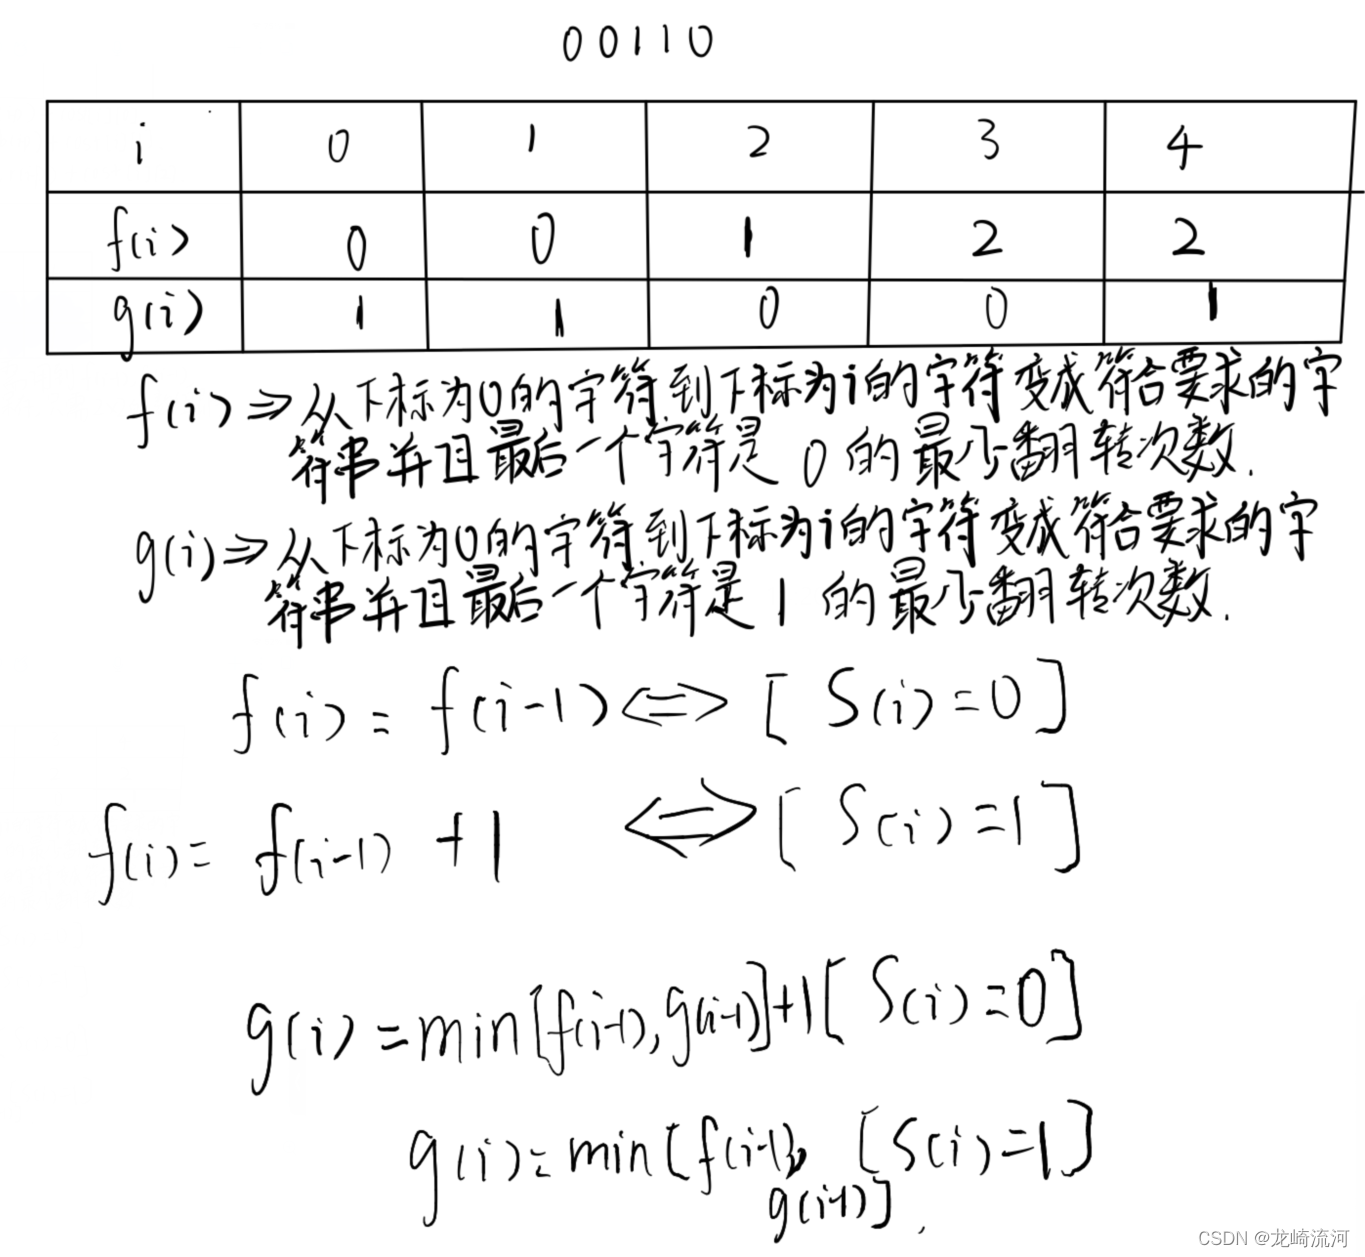 00110
i 0 1 2 3 4
f(i) 0 0 1 2 2
g(i) 1 1 0 0 1
f(i) ⇒ 从下标为0的字符到下标为i的字符变成符合要求的字
符串并且最后一个字符是 0 的最少翻转次数.
g(i) ⇒ 从下标为0的字符到下标为i的字符变成符合要求的字
符串并且最后一个字符是 1 的最少翻转次数.
f(i) = f(i-1) ⟺ [ S(i) = 0 ]
f(i) = f(i-1) + 1 ⟺ [ S(i) = 1 ]
g(i) = min[f(i-1), g(i-1)]+1 [ S(i) = 0 ]
g(i) = min[f(i-1), [S(i) = 1]
g(i-1)] .
CSDN @龙崎流河